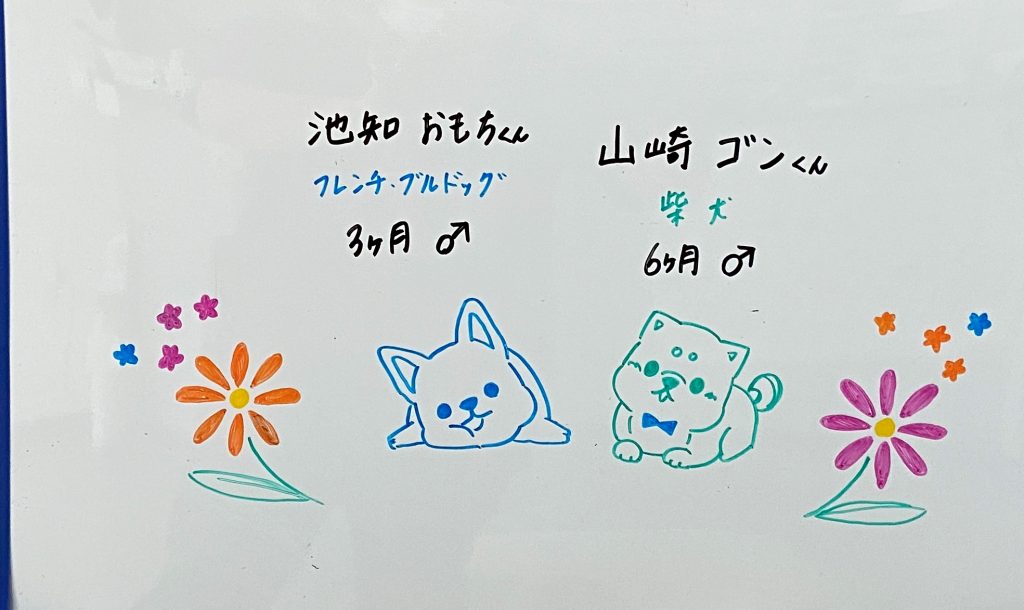 池知 おもちくん
フレンチ・ブルドッグ
3ヶ月 ♂
山崎 ゴンくん
柴犬
6ヶ月 ♂